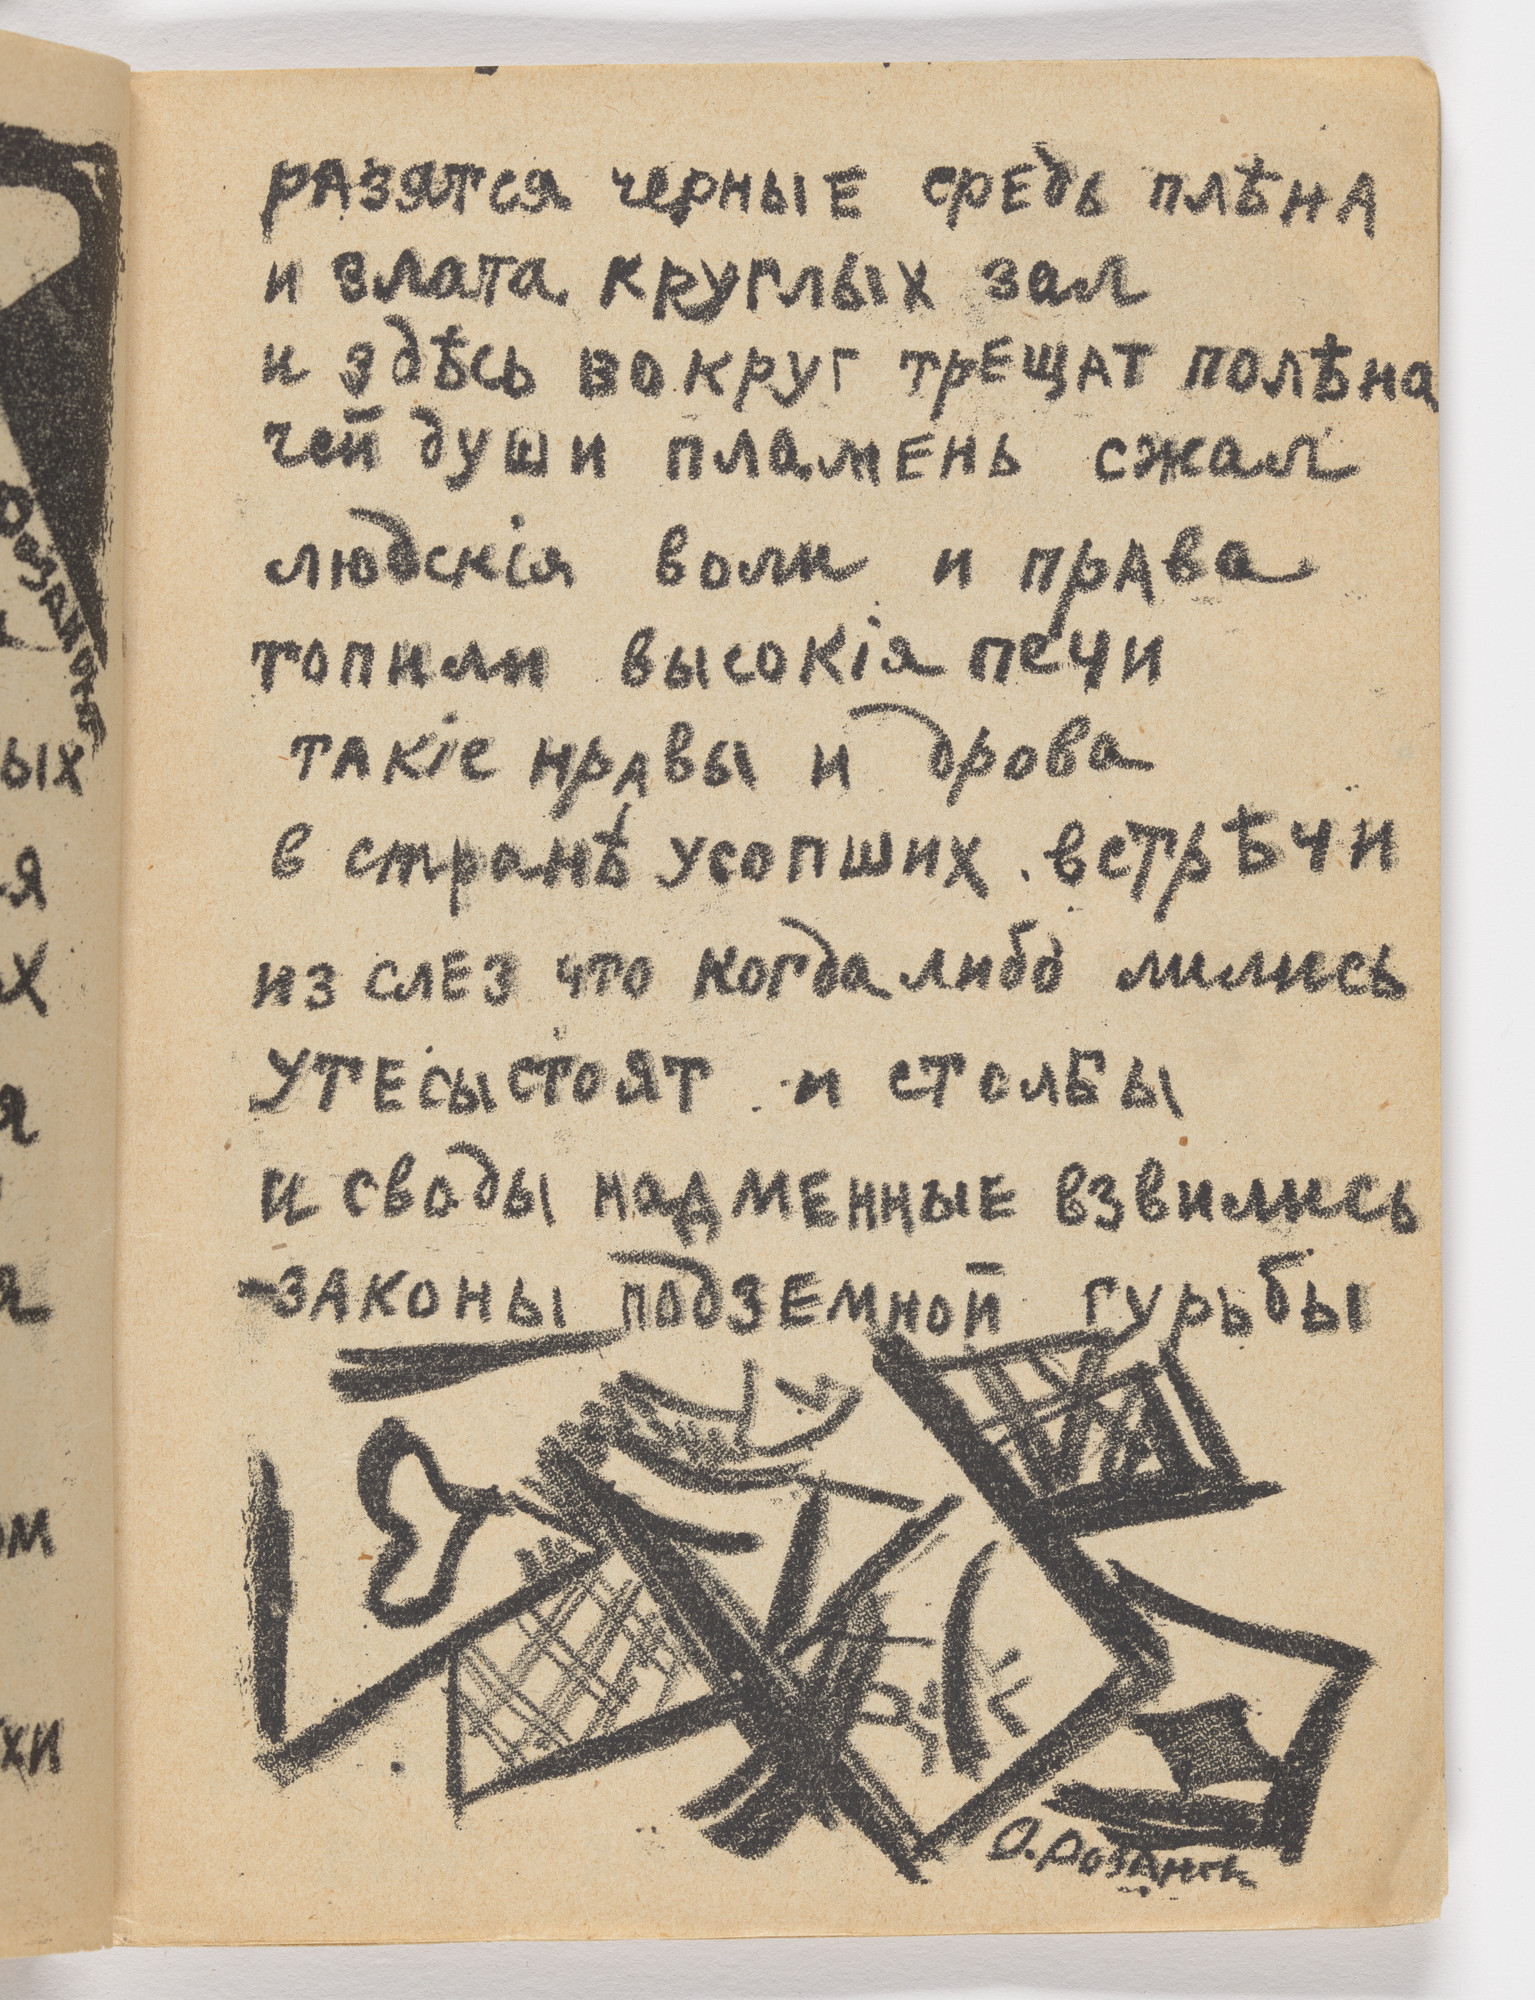 разятся черные средь плѣна
и злата круглых зал
и здѣсь вокруг трещат полѣна
чей души пламень сжал
людскія воли и права
топили высокія печи
такіе нравы и дрова
в странѣ усопших встрѣчи
из слез что когда либо лились
утесы стоят и столбы
и своды надменные взвились
-законы подземной гурьбы
О. Розанов